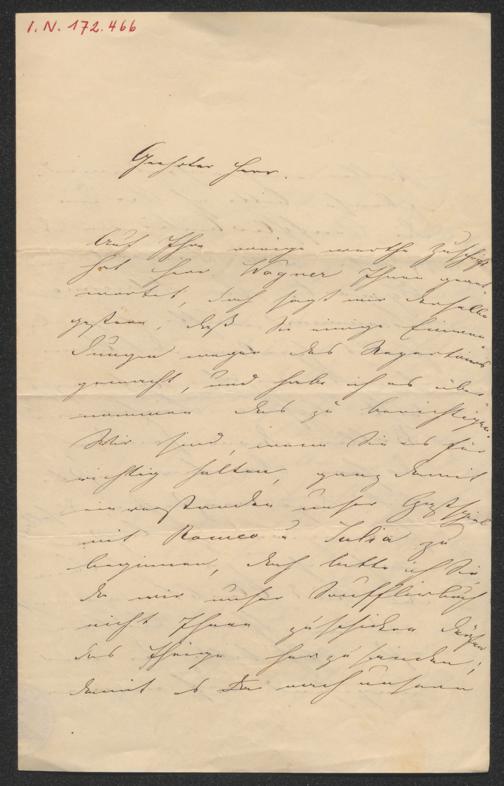 I. N. 172.466
Geehrter Herr.
Auf Ihre einige werthe Zuschrift
hat Herr Wagner Ihnen geant-
wortet, doch sagt mir derselbe
gestern, daß Sie einige Einwen-
dungen wegen des Repertoirs
gemacht, und habe ich es über-
nommen das zu berichtigen.
Wir sind, wenn Sie es für
richtig halten, ganz damit
einverstanden unser Gastspiel
mit Romeo u Julia zu
beginnen, doch bitte ich Sie,
da wir unser Soufflirbuch
nicht Ihnen zuschicken dürfen
das Ihrige herzusenden;
damit es da nach unserm